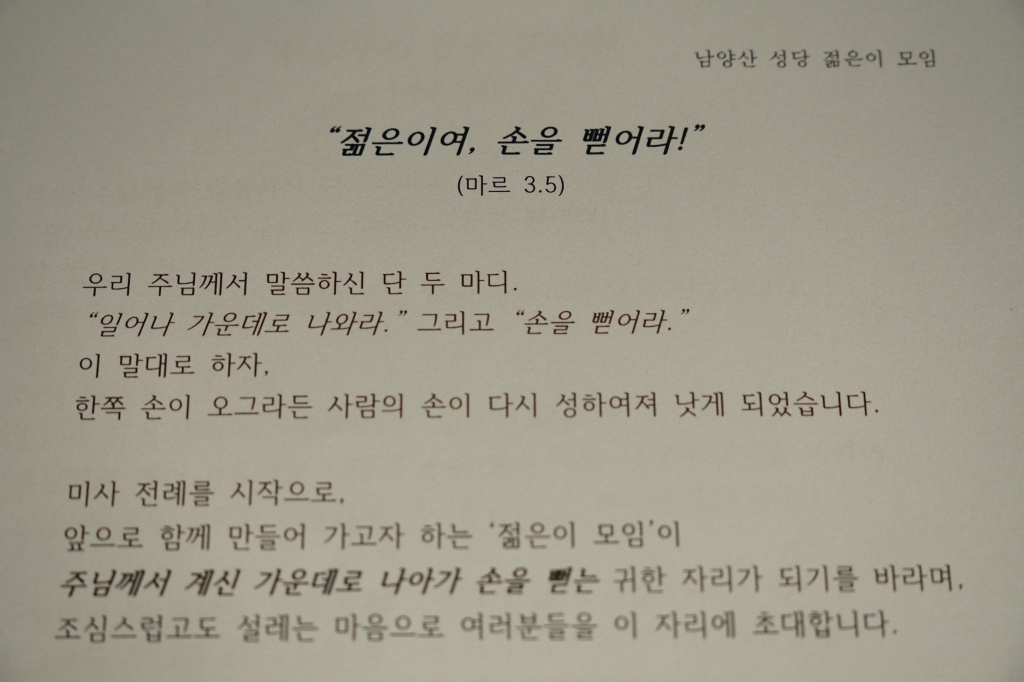 남양산 성당 젊은이 모임
“젊은이여, 손을 뻗어라!”
(마르 3.5)
우리 주님께서 말씀하신 단 두 마디.
“일어나 가운데로 나와라.” 그리고 “손을 뻗어라.”
이 말대로 하자,
한쪽 손이 오그라든 사람의 손이 다시 성하여져 낫게 되었습니다.
미사 전례를 시작으로,
앞으로 함께 만들어 가고자 하는 ‘젊은이 모임’이
주님께서 계신 가운데로 나아가 손을 뻗는 귀한 자리가 되기를 바라며,
조심스럽고도 설레는 마음으로 여러분들을 이 자리에 초대합니다.